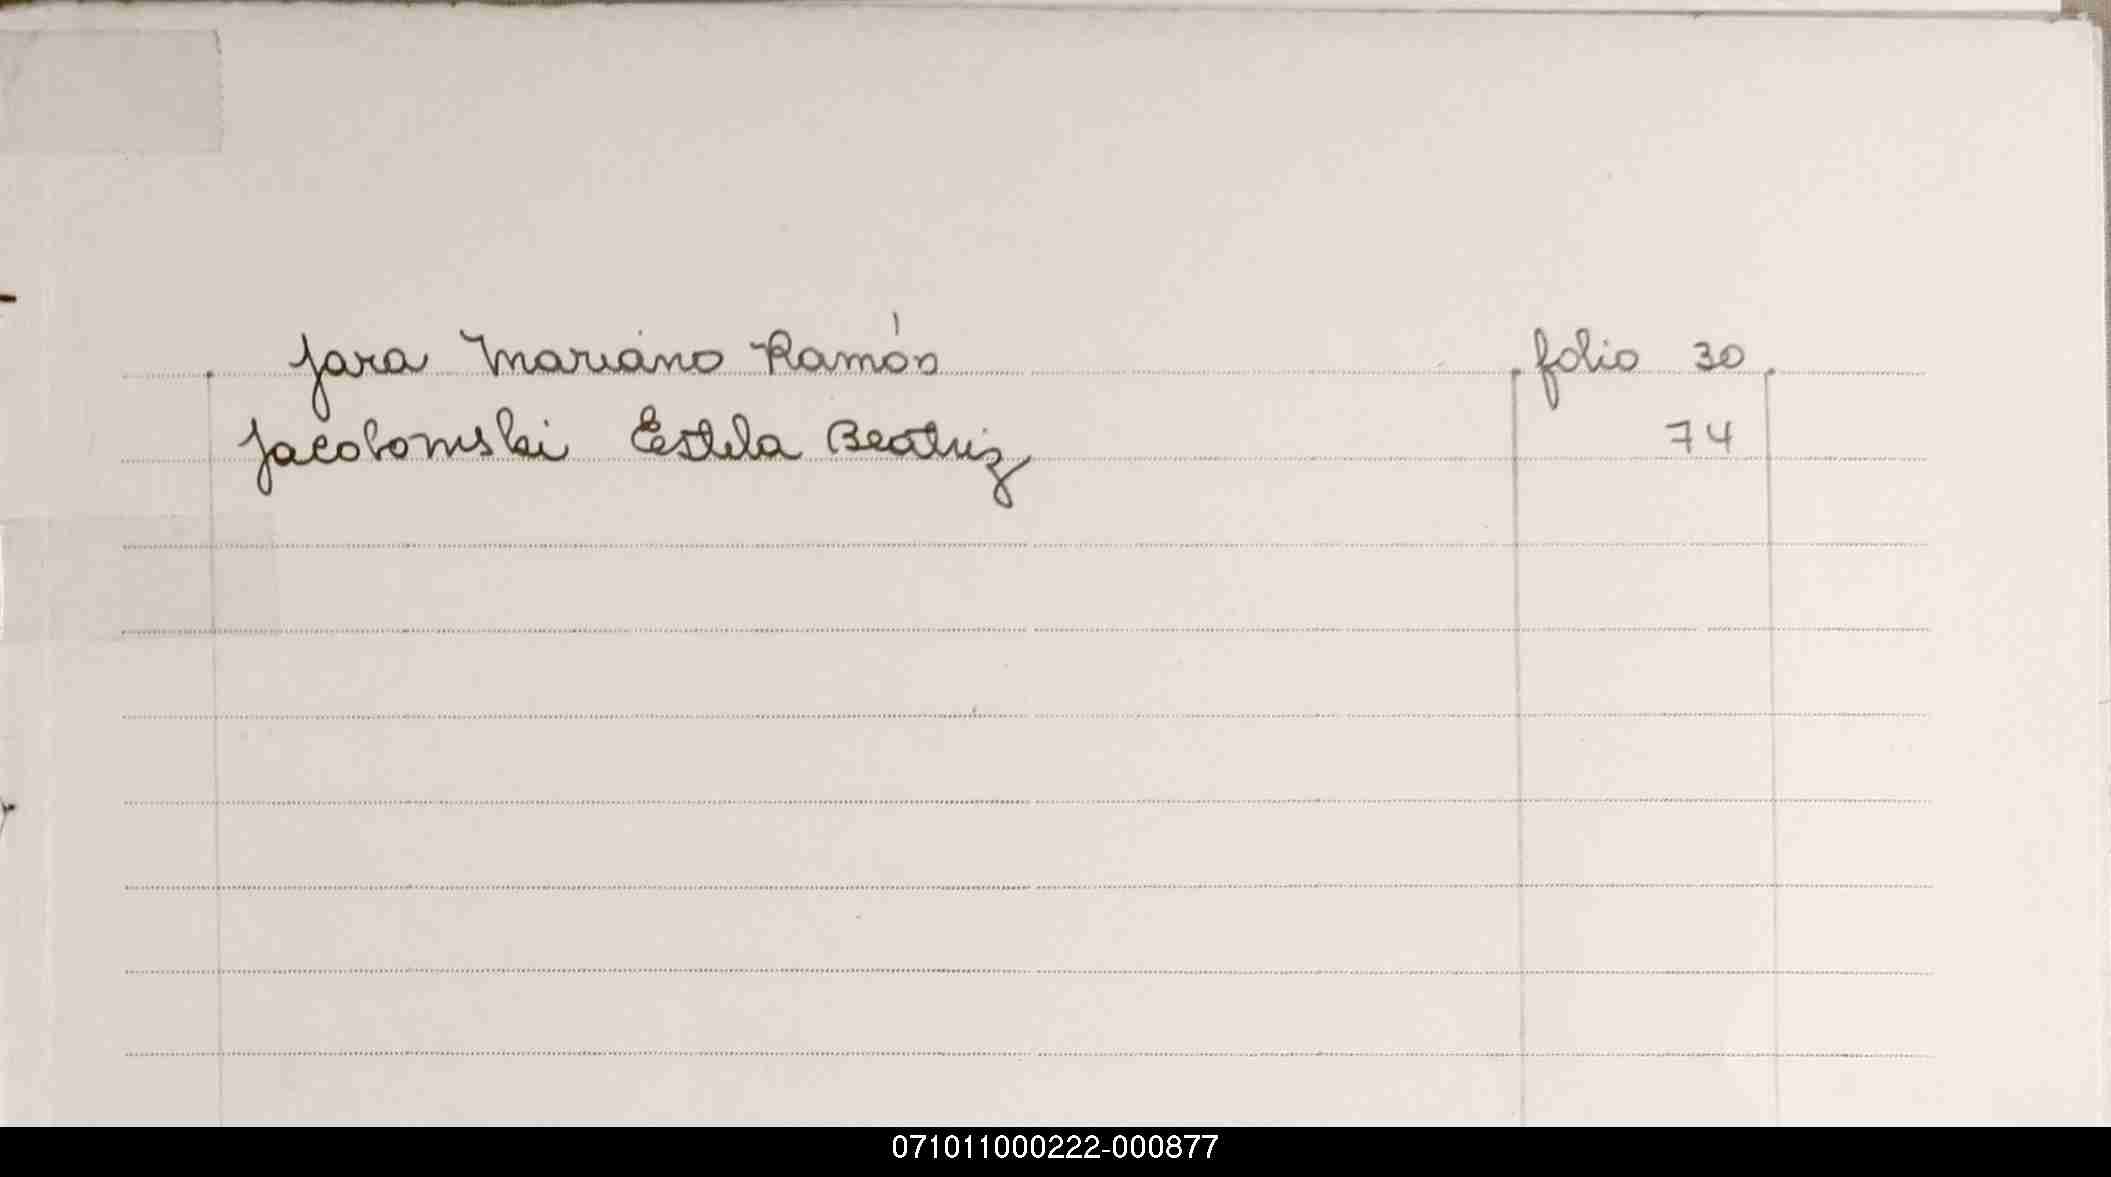 Jara Mariano Ramón folio 30
Jacobowski Estela Beatriz 74
071011000222-000877